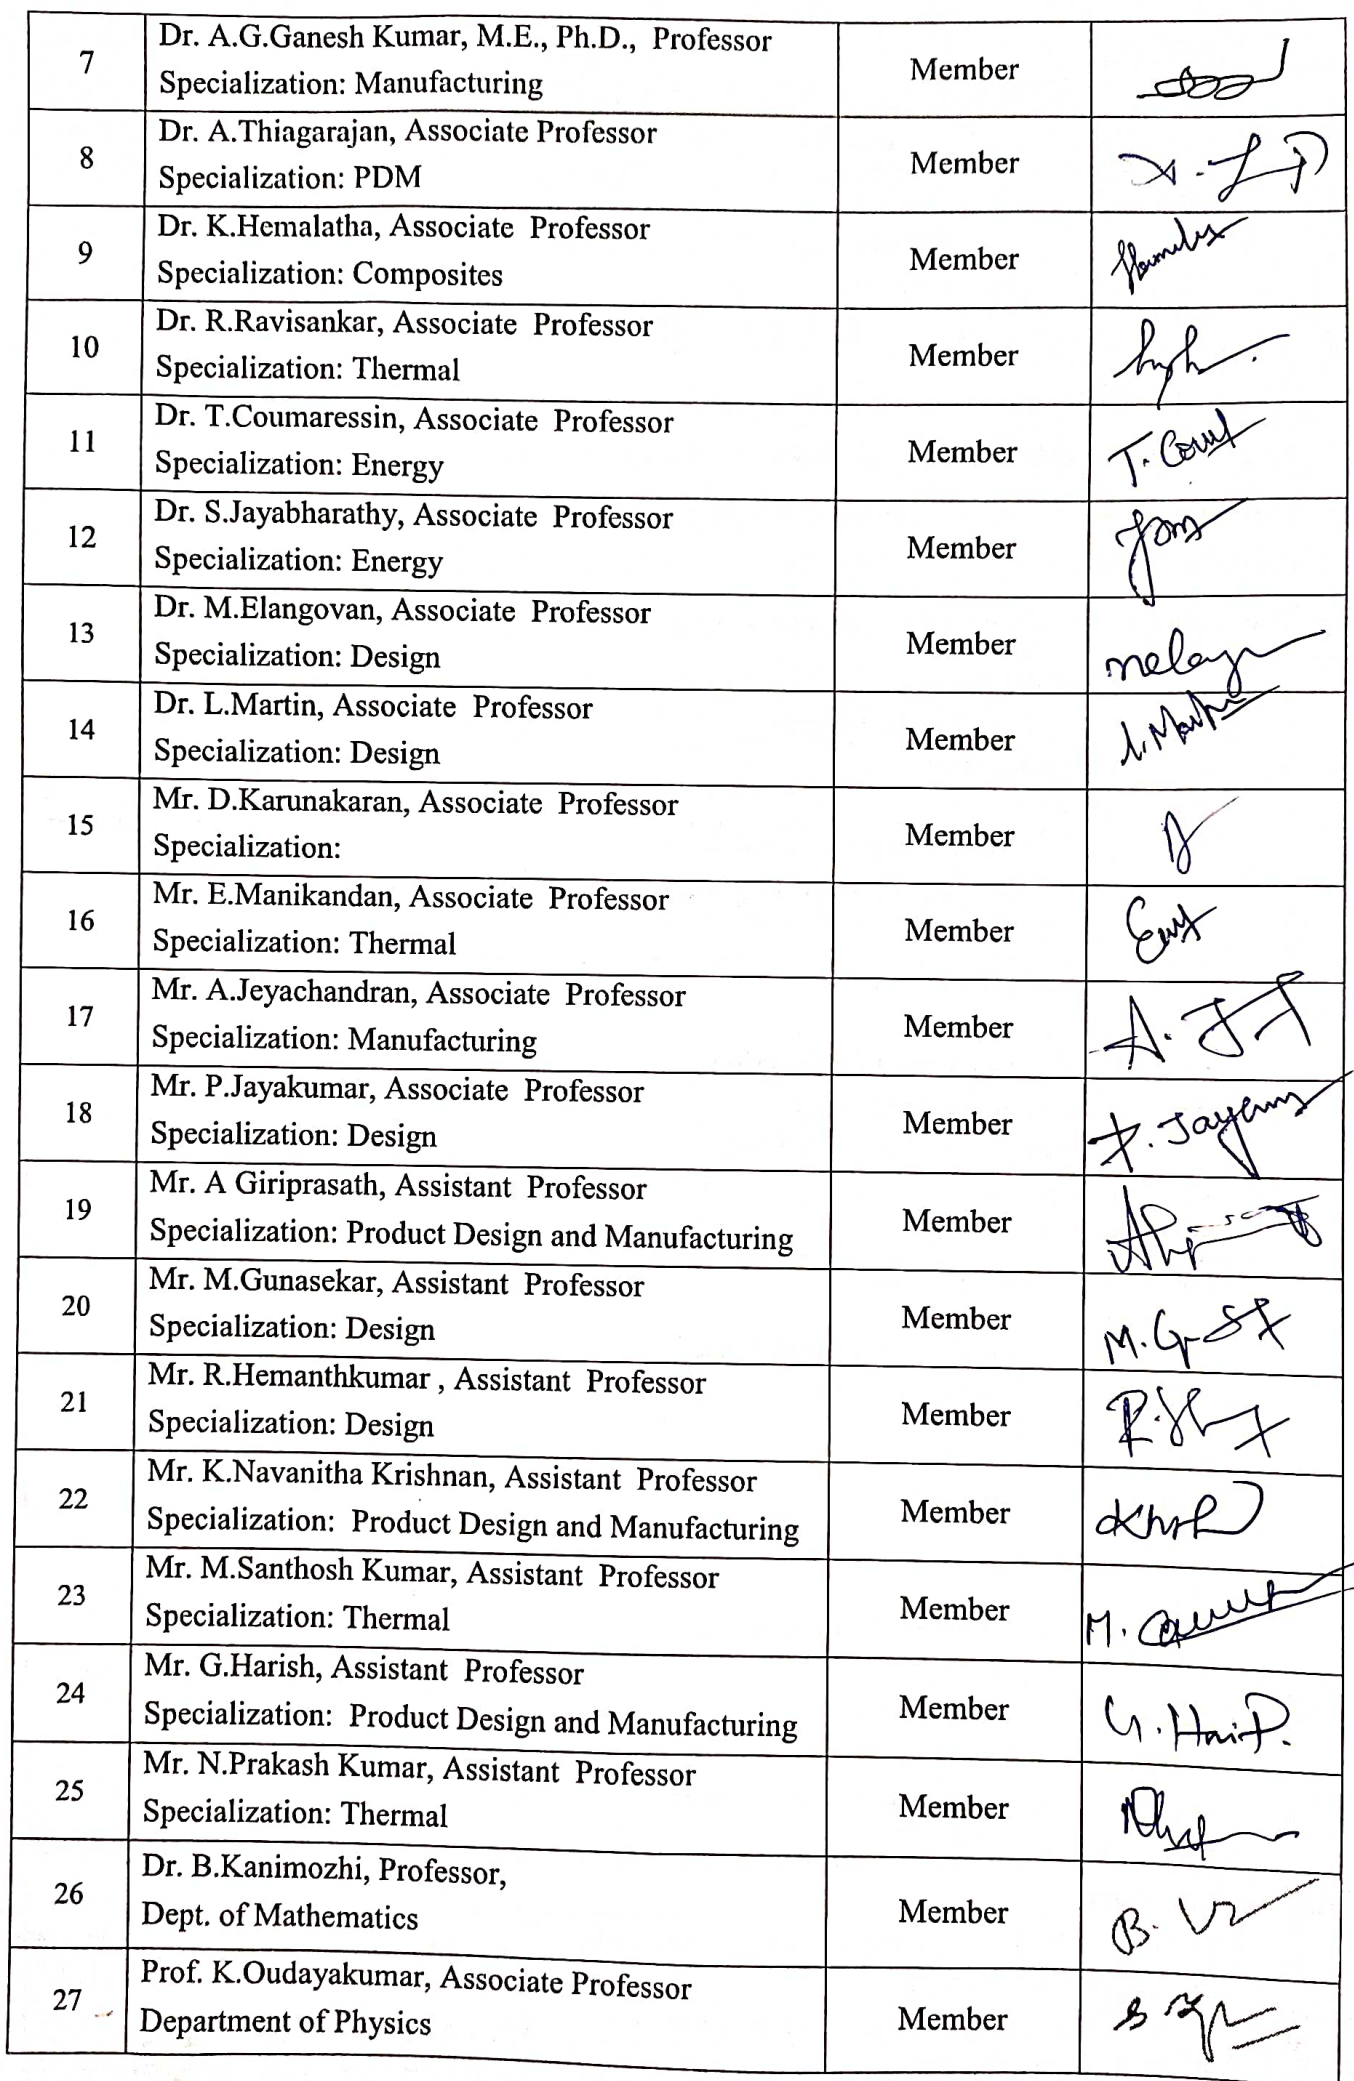 7
Dr. A.G.Ganesh Kumar, M.E., Ph.D., Professor
Specialization: Manufacturing
Member
8
Dr. A.Thiagarajan, Associate Professor
Specialization: PDM
Member
9
Dr. K.Hemalatha, Associate Professor
Specialization: Composites
Member
10
Dr. R.Ravisankar, Associate Professor
Specialization: Thermal
Member
11
Dr. T.Coumaressin, Associate Professor
Specialization: Energy
Member
12
Dr. S.Jayabharathy, Associate Professor
Specialization: Energy
Member
13
Dr. M.Elangovan, Associate Professor
Specialization: Design
Member
14
Dr. L.Martin, Associate Professor
Specialization: Design
Member
15
Mr. D.Karunakaran, Associate Professor
Specialization:
Member
16
Mr. E.Manikandan, Associate Professor
Specialization: Thermal
Member
17
Mr. A.Jeyachandran, Associate Professor
Specialization: Manufacturing
Member
18
Mr. P.Jayakumar, Associate Professor
Specialization: Design
Member
19
Mr. A Giriprasath, Assistant Professor
Specialization: Product Design and Manufacturing
Member
20
Mr. M.Gunasekar, Assistant Professor
Specialization: Design
Member
21
Mr. R.Hemanthkumar , Assistant Professor
Specialization: Design
Member
22
Mr. K.Navanitha Krishnan, Assistant Professor
Specialization: Product Design and Manufacturing
Member
23
Mr. M.Santhosh Kumar, Assistant Professor
Specialization: Thermal
Member
24
Mr. G.Harish, Assistant Professor
Specialization: Product Design and Manufacturing
Member
25
Mr. N.Prakash Kumar, Assistant Professor
Specialization: Thermal
Member
26
Dr. B.Kanimozhi, Professor,
Dept. of Mathematics
Member
27
Prof. K.Oudayakumar, Associate Professor
Department of Physics
Member